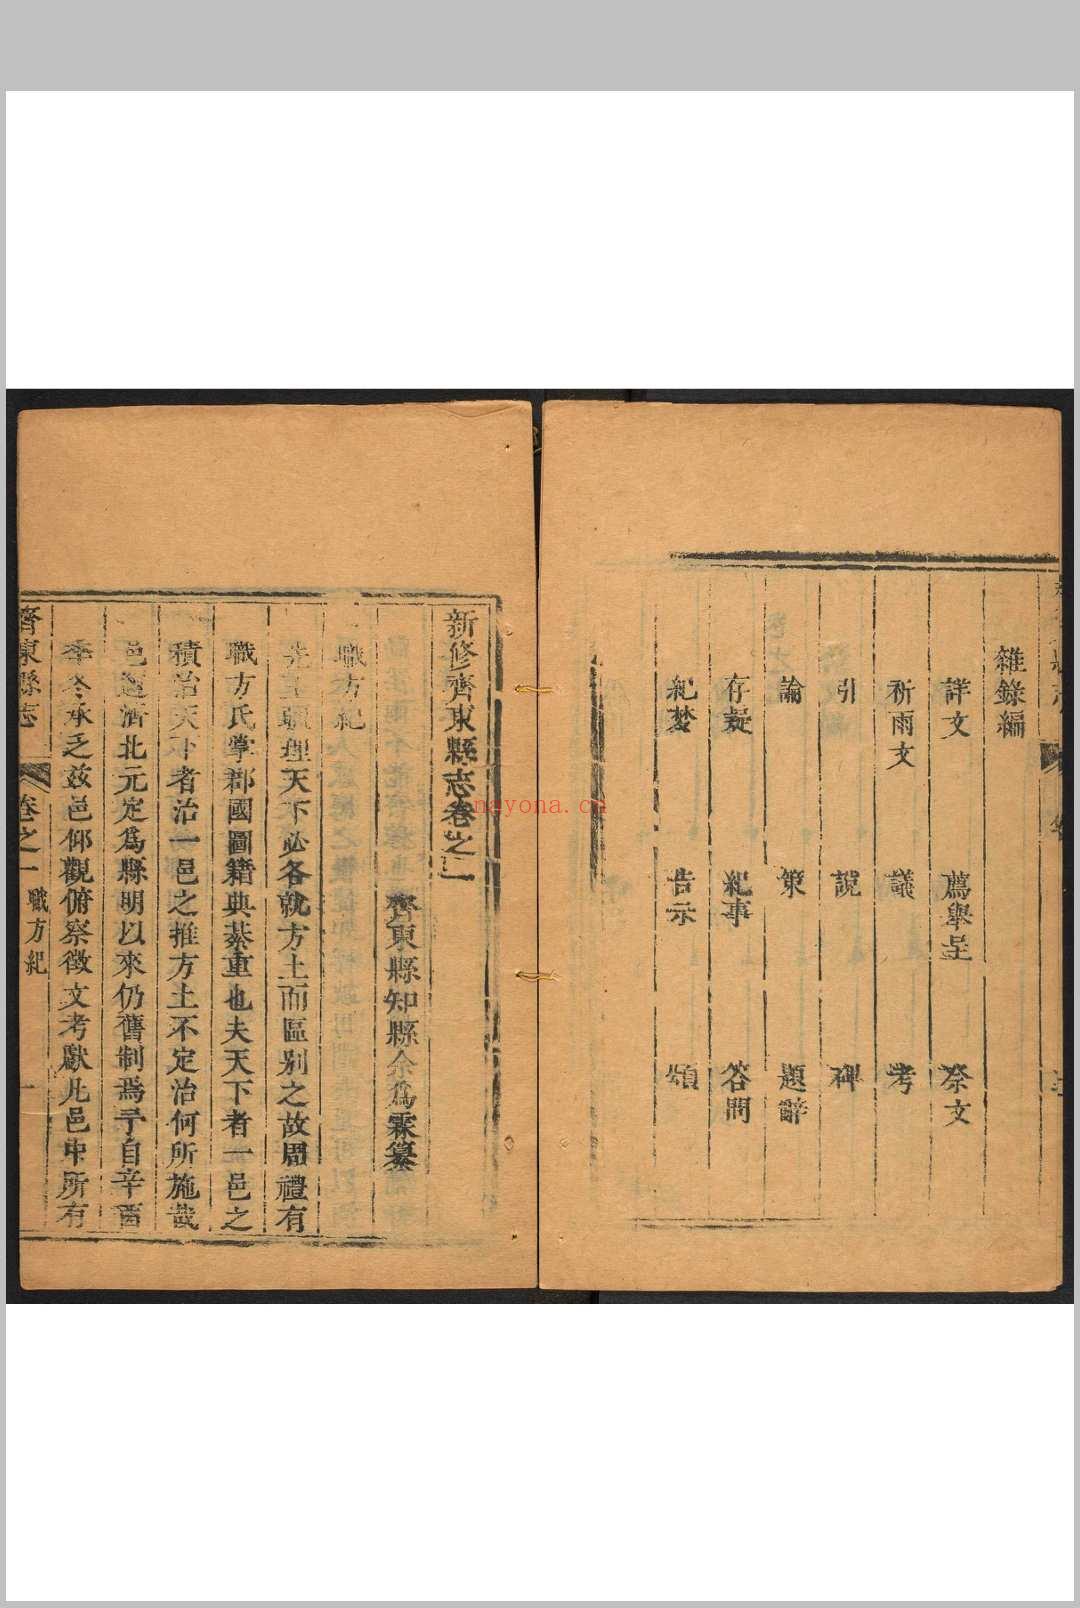 雜錄編
詳文 薦舉呈 祭文
祈雨文 議 考
引 說 碑
論 策 題辭
存疑 紀事 答問
紀夢 告示 頌
新修齊東縣志卷之一
齊東縣知縣余為霖纂
職方紀
先王疆理天下必各就方土而區别之故周禮有
職方氏掌郡國圖籍典綦重也夫天下者一邑之
積治天下者治一邑之推方土不定治何所施哉
邑
濟北元定爲縣明以來仍舊制焉予自辛酉
季冬承乏茲邑仰觀俯察徵文考獻凡邑中所有
齊東縣志 卷之一 職方紀 一
nayona.cn